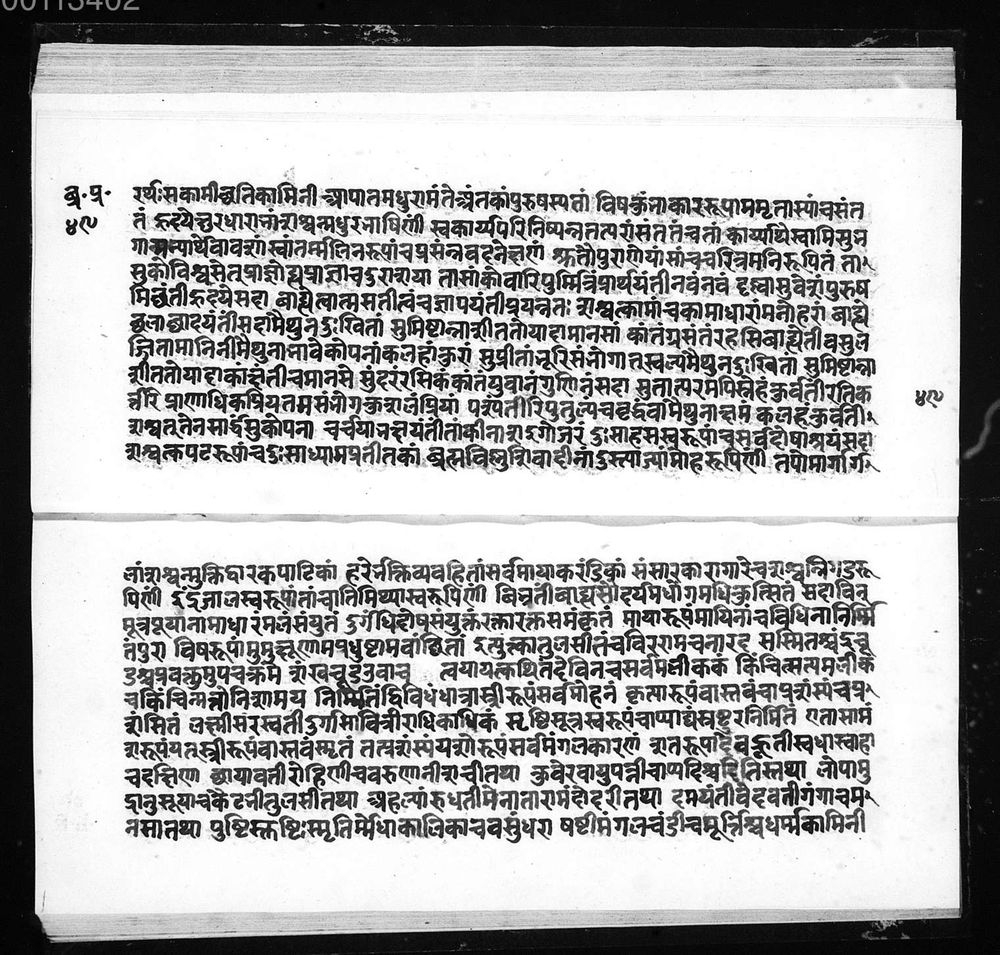 00113402
ब्र. प्र.
४९
रर्थःसकामीच्चतिकामिनी आपातमधुरामंतेअंतकांपुरुषस्यतां विषकुंभाकाररूपाममृतास्यांचसंत
तं हृदयेक्षुरधारानांशश्वन्मधुरभाषिणीं स्वकार्यपरिनिष्पन्नतत्परांसंततंचतां कार्यार्थेस्वामि
स्वांतर्म्मलिनरूपांचप्रसन्नवदनेक्षणां श्रुतौपुराणेयासांचचरित्रमनिरूपितं
तासुकोविश्वसेत् तासांकोवारिपुर्मित्रंप्रार्थयंतीनवंनवं दृष्ट्वासुवेशंपुरुष
मिछंतीहृदयेसदा बाह्येत्वात्मसतीत्वंचज्ञापयंतीप्रयन्नतः शश्वत्कामांचकामाधारांमनोहरां बाह्ये
छलाछादयंतीसदामैथुनदुःखितां सुमिष्टान्नाशीततोयादामानसां कांतंग्रसंतंरहसिबाह्येतीवसुल
ज्जितांमानिनीमैथुनाभावेकोपनांकलहांकुरां सुप्रीतांभूरिसंभोगात्स्वल्पमैथुनदुःखितां सुमिष्टान्ना
शीततोयादाकांक्षंतीचमानसे सुंदरंरसिकंकांतंयुवानंगुणिनंसदा सुतात्परमपिस्नेहंकुर्वतीरतिक
र्त्तरि प्राणाधिकप्रियतमसंभोगकुशलंप्रियां पश्यंतीरिपुतुल्यंचवृद्धंवामैथुनाक्षम कलहंकुर्वतीं
शश्वत्तेनसार्द्धंसुकोपना चर्चयाभक्षयंतीतांकीनाशइगोजरं दुःसाहसस्वरूपांचसर्वदोषाश्रयंसदा
शश्वत्कपटरूपांचदुःसाध्यामप्रतीतकां ब्रह्मविष्णुशिवादीनांदुस्त्याज्यांमोहरूपिणीं तपोमार्गार्ग
४९
लांशश्वन्मुक्तिद्वारकपाटिकां हरेर्भक्तिव्यवहितांसर्वमायाकरंडिकां संसारकारागारेचशश्वन्निगडरू
पिणीं इंद्रजालस्वरूपांतांचातिमिथ्यास्वरूपिणीं बिभ्रतींबाह्यसौंदर्यमधोंगमधिकुत्सितं सदाविन्
मूत्रपूयानामाधारंमलसंयुतं दुर्गंधिदोषसंयुक्तंरक्तारक्तसमंकृतं मायारूपंमायिनांचविधिनानिर्मि
तंपुरा विषरूपांमुमुक्षूणामप्रधृष्टामवांछितां इत्युत्क्कातुलसीतंचविररामचनारद सस्मितश्चं
प्रवक्तुमुपचक्रमे शंखचूडउवाच त्वयायत्कथितंदेविनचसर्वमलीककं किंचित्सत्यमलीकं
चकिंचिन्मत्तोनिशामय निर्मितंद्विविधंधात्रास्त्रीरूपंसर्वमोहनं कृत्यारूपंवास्तवंचाप्रशस्यंचप्र
शंसितं लक्ष्मीसरस्वतीदुर्गासावित्रीराधिकाधिकं सृष्टिसूत्रस्वरूपंचाप्याद्यंस्रष्टुरनिर्मितं एतासामं
शरूपंयत्स्त्रीरूपंवास्तवंस्मृतं तत्प्रशस्यंयशोरूपंसर्वमंगलकारणं शतरूपादेवहूतीस्वधास्वाहा
चदक्षिणा छायावतीरोहिणीचवरुणानीशचीतथा कुबेरवायुपत्नीचाप्यदितिश्चदितिस्तथा लोपामु
द्रानुसूयाचकैटभीतुलसीतथा अहल्यारुंधतीमेनातारामंदोदरीतथा दमयंतीवेदवतीगंगाचम
नसातथा पुष्टिस्तुष्टिःस्मृतिर्म्मेधाकालिकाचवसुंधरा षष्टीमंगलचंडीचमूर्त्तिश्चधर्म्मकामिनी